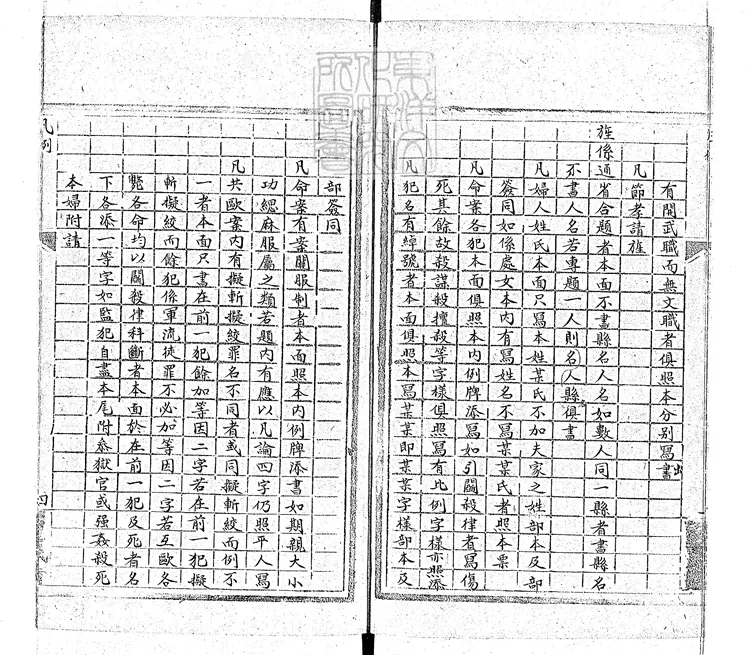 有關武職而無文職者俱照本分別寫書出
凡節孝請旌
旌係通省合題者本面不書縣名人名如數人同一縣者書縣名
不書人名若專題一人則名人縣俱書
凡婦人姓氏本面只寫本姓某氏不加夫家之姓部本及部
簽同如係處女本內有寫姓名不寫某氏者照本票
凡命案各犯本面俱照本內例牌添寫如引鬬殺律者寫傷
死其餘故殺謀殺擅殺等字樣俱照寫有比例字樣亦照添
凡犯名有綽號者本面俱照本寫某某即某某字樣部本及
部簽同
凡命案有案關服制者本面照本內例牌添書如期親大小
功緦麻服屬之類若題內有應以凡論四字仍照平人寫
凡共毆案內有擬斬擬絞罪名不同者或同擬斬絞而例不
一者本面只書在前一犯餘加等因二字若在前一犯擬
斬擬絞而餘犯係軍流徒罪不必加等因二字若互毆各
斃各命均以鬬殺律科斷者本面於在前一犯及死者名
下各添一等字如監犯自盡本尾附參獄官或强姦殺死
本婦附請
凡例
四